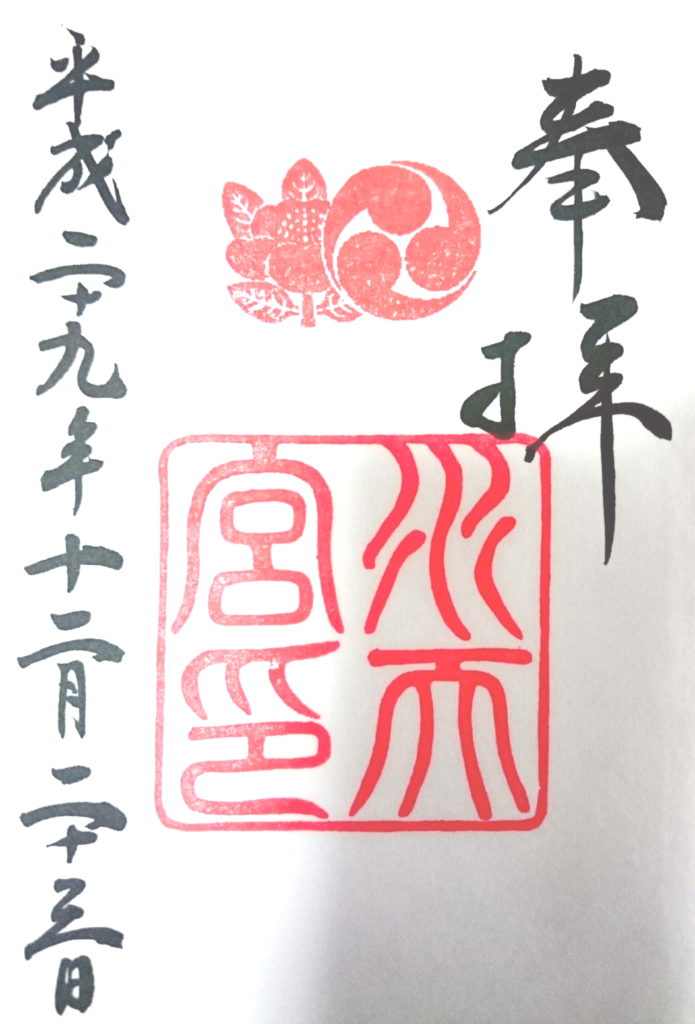 奉拝
水天
宮印
平成二十九年十二月二十三日